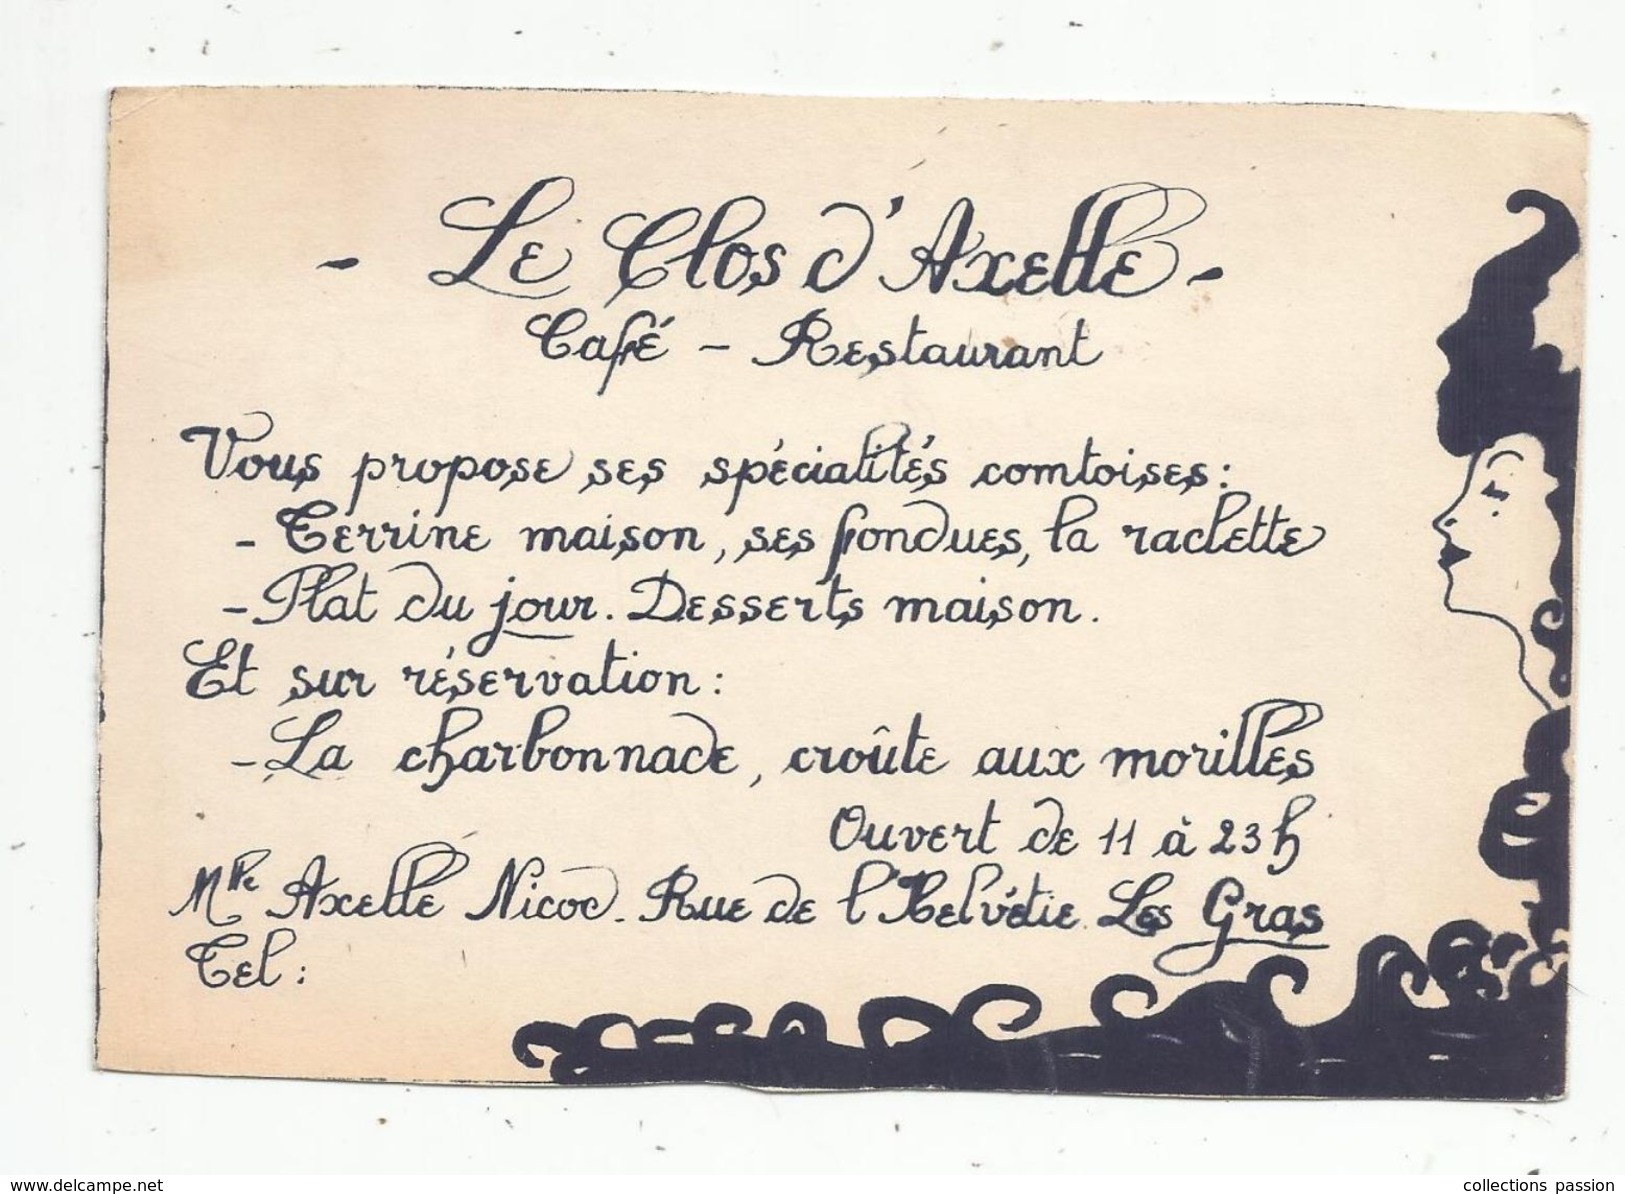 - Le Clos d'Axelle -
Café - Restaurant
Vous propose ses spécialités comtoises :
- Terrine maison, ses fondues, la raclette
- Plat du jour. Desserts maison.
Et sur réservation :
- La charbonnade, croûte aux morilles
Ouvert de 11 à 23 h
Mlle Axelle Nicod. Rue de l'Helvétie. Les Gras
Tel :
www.delcampe.net
collections passion